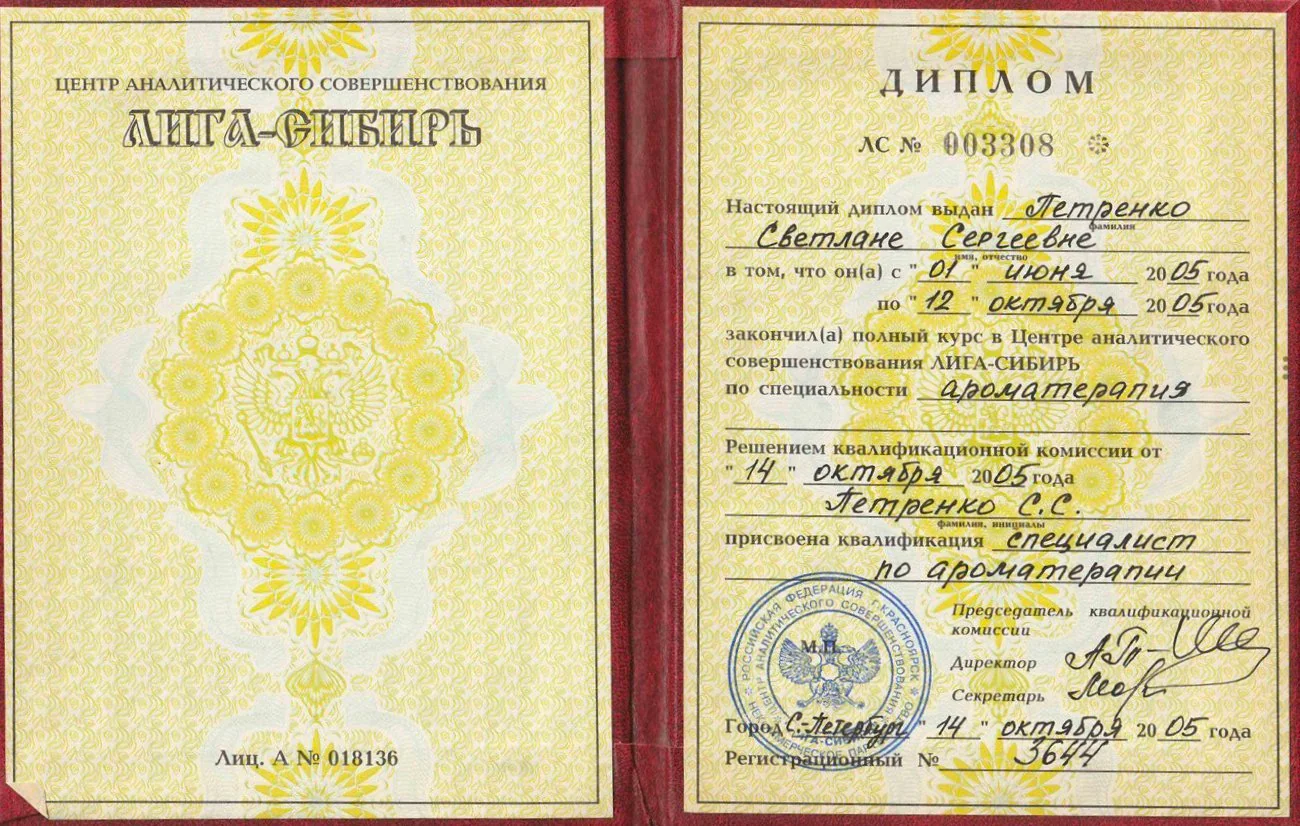 ЦЕНТР АНАЛИТИЧЕСКОГО СОВЕРШЕНСТВОВАНИЯ
ЛИГА-СИБИРЬ
Лиц. А № 018136
ДИПЛОМ
ЛС № 003308
Настоящий диплом выдан Петренко
фамилия
Светлане Сергеевне
имя, отчество
в том, что он(а) с "01" июня 2005 года
по "12" октября 2005 года
закончил(а) полный курс в Центре аналитического
совершенствования ЛИГА-СИБИРЬ
по специальности ароматерапия
Решением квалификационной комиссии от
"14" октября 2005 года
Петренко С.С.
фамилия, инициалы
присвоена квалификация специалист
по ароматерапии
Председатель квалификационной
комиссии
Директор
Секретарь
М.П.
РОССИЙСКАЯ ФЕДЕРАЦИЯ г.КРАСНОЯРСК
НЕКОММЕРЧЕСКОЕ ПАРТНЕРСТВО
ЦЕНТР АНАЛИТИЧЕСКОГО СОВЕРШЕНСТВОВАНИЯ
ЛИГА-СИБИРЬ
Город С.-Петербург "14" октября 2005 года
Регистрационный № 3644